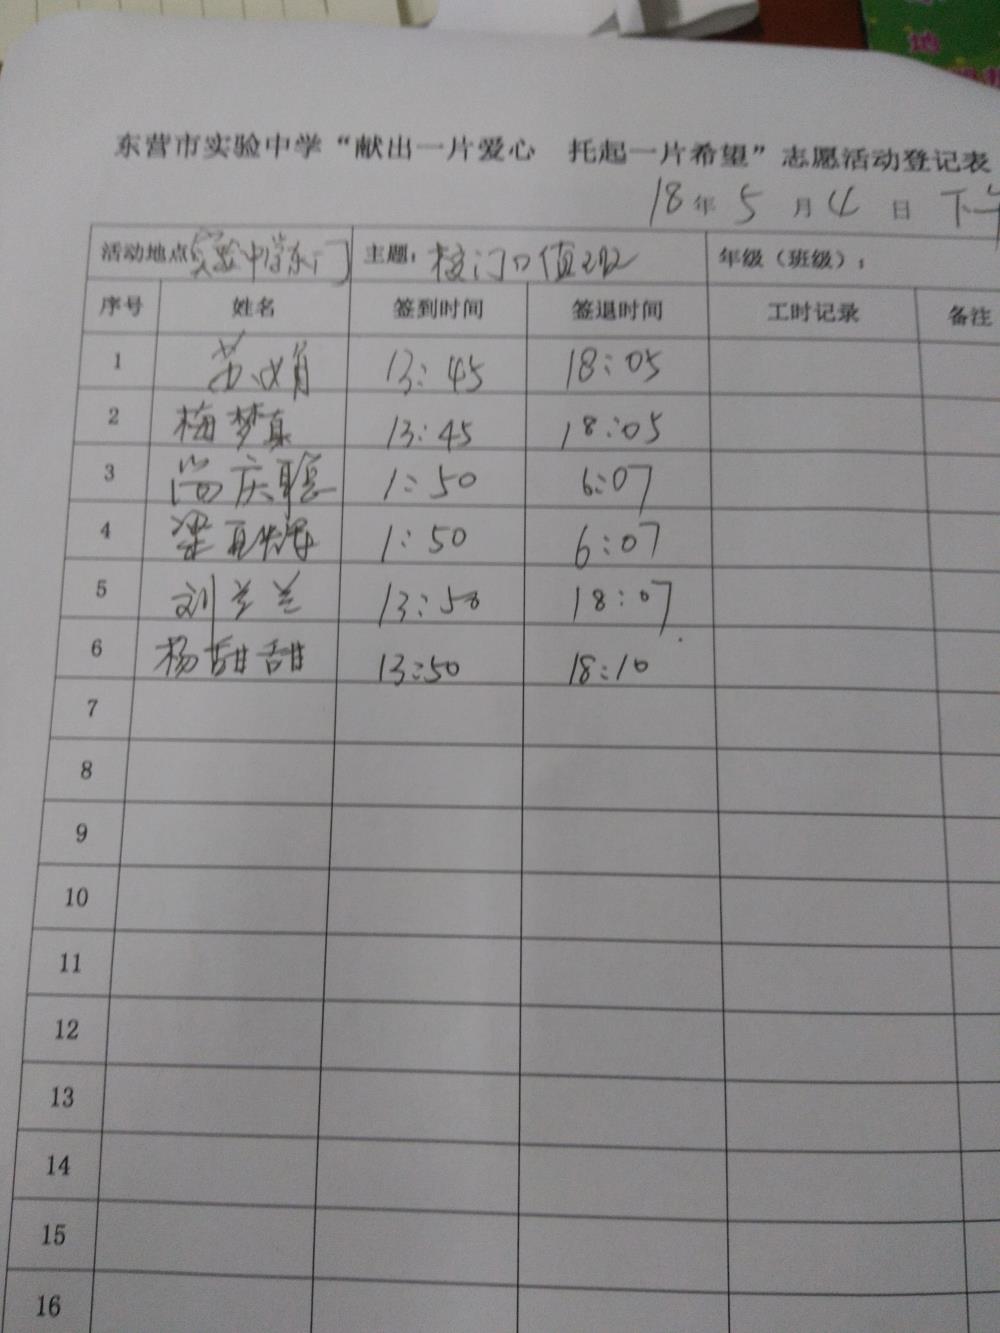 东营市实验中学“献出一片爱心 托起一片希望”志愿活动登记表
18年5月4日 下午
活动地点 实验中学东门 主题：校门口值班 年级（班级）：
序号 姓名 签到时间 签退时间 工时记录 备注
1 13:45 18:05
2 梅梦真 13:45 18:05
3 尚庆聪 1:50 6:07
4 梁 1:50 6:07
5 刘兰兰 13:50 18:07
6 杨甜甜 13:50 18:10
7
8
9
10
11
12
13
14
15
16